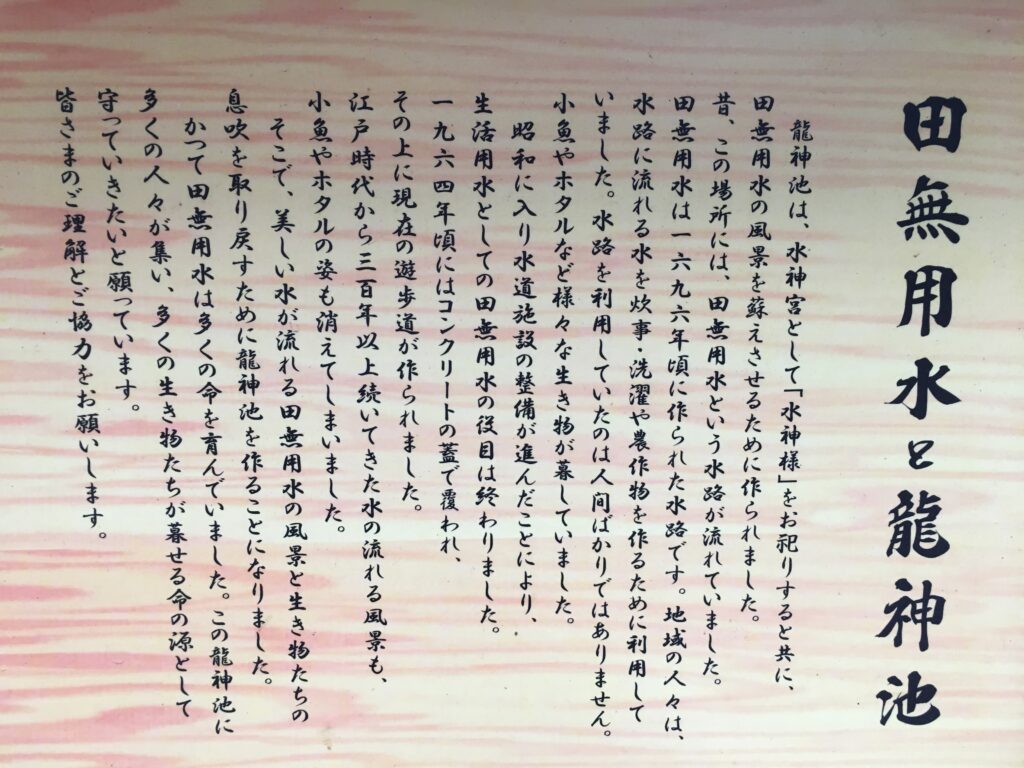 田無用水と龍神池
龍神池は、水神宮として「水神様」をお祀りすると共に、
田無用水の風景を蘇えさせるために作られました。
昔、この場所には、田無用水という水路が流れていました。
田無用水は一六九六年頃に作られた水路です。地域の人々は、
水路に流れる水を炊事・洗濯や農作物を作るために利用して
いました。水路を利用していたのは人間ばかりではありません。
小魚やホタルなど様々な生き物が暮していました。
昭和に入り水道施設の整備が進んだことにより、
生活用水としての田無用水の役目は終わりました。
一九六四年頃にはコンクリートの蓋で覆われ、
その上に現在の遊歩道が作られました。
江戸時代から三百年以上続いてきた水の流れる風景も、
小魚やホタルの姿も消えてしまいました。
そこで、美しい水が流れる田無用水の風景と生き物たちの
息吹を取り戻すために龍神池を作ることになりました。
かつて田無用水は多くの命を育んでいました。この龍神池に
多くの人々が集い、多くの生き物たちが暮せる命の源として
守っていきたいと願っています。
皆さまのご理解とご協力をお願いします。